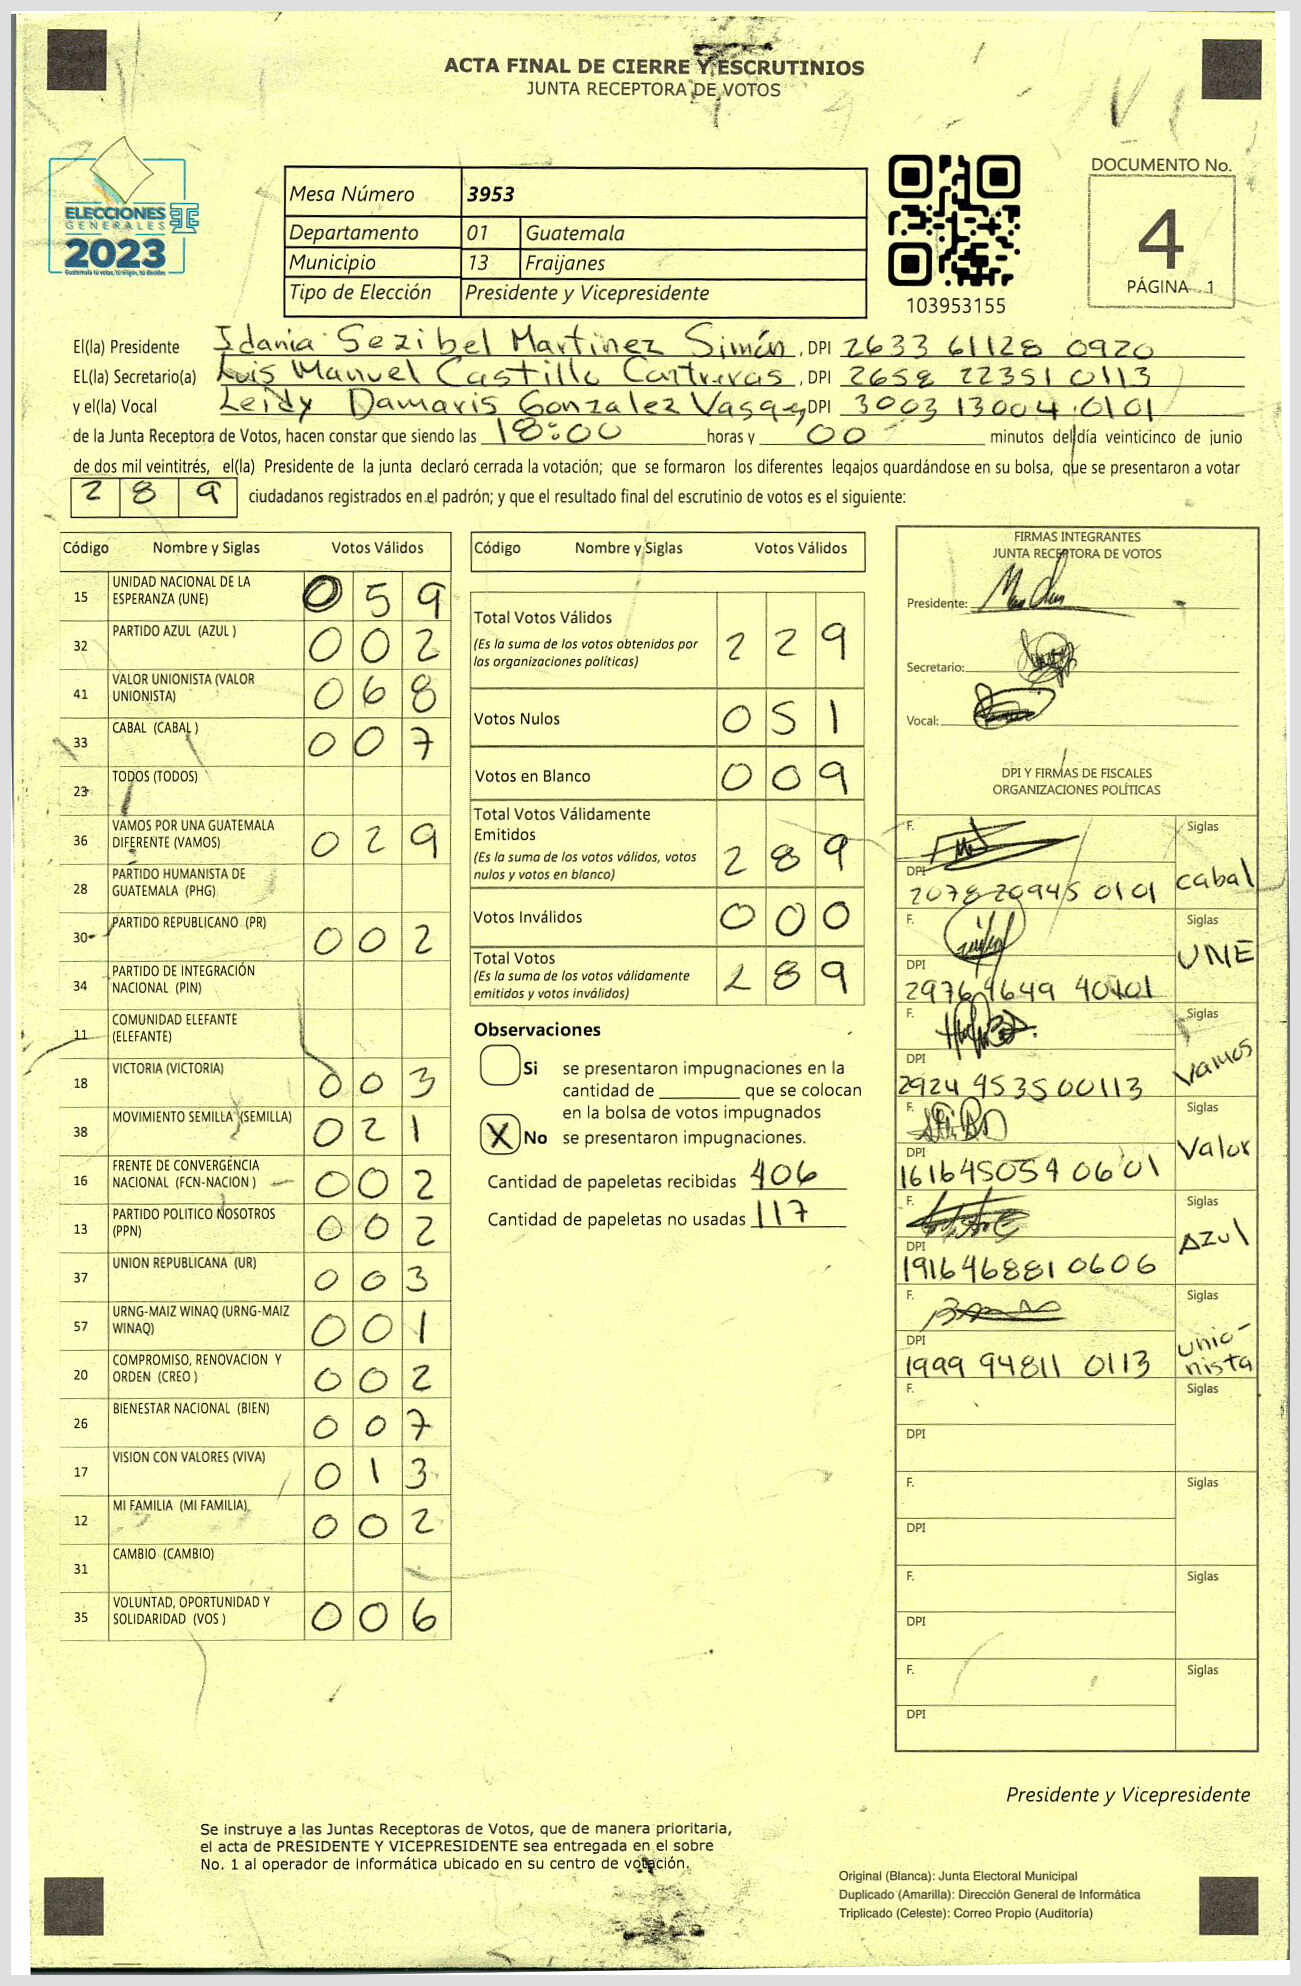 ACTA FINAL DE CIERRE Y ESCRUTINIOS
JUNTA RECEPTORA DE VOTOS
ELECCIONES
GENERALES
2023
Mesa Número 3953
Departamento 01 Guatemala
Municipio 13 Fraijanes
Tipo de Elección Presidente y Vicepresidente
103953155
DOCUMENTO No.
4
PÁGINA 1
El(la) Presidente Idania Sezibel Martinez Simón, DPI 2633 61128 0920
EL(la) Secretario(a) Luis Manuel Castillo Contreras, DPI 2658 22351 0113
y el(la) Vocal Leidy Damaris Gonzalez Vasquez, DPI 3003 13004 0101
de la Junta Receptora de Votos, hacen constar que siendo las 18:00 horas y 00 minutos del día veinticinco de junio
de dos mil veintitrés, el(la) Presidente de la junta declaró cerrada la votación; que se formaron los diferentes legajos guardándose en su bolsa, que se presentaron a votar
289 ciudadanos registrados en el padrón; y que el resultado final del escrutinio de votos es el siguiente:
Código Nombre y Siglas Votos Válidos
15 UNIDAD NACIONAL DE LA ESPERANZA (UNE) 059
32 PARTIDO AZUL (AZUL ) 002
41 VALOR UNIONISTA (VALOR UNIONISTA) 068
33 CABAL (CABAL ) 007
23 TODOS (TODOS)
36 VAMOS POR UNA GUATEMALA DIFERENTE (VAMOS) 029
28 PARTIDO HUMANISTA DE GUATEMALA (PHG)
30 PARTIDO REPUBLICANO (PR) 002
34 PARTIDO DE INTEGRACIÓN NACIONAL (PIN)
11 COMUNIDAD ELEFANTE (ELEFANTE)
18 VICTORIA (VICTORIA) 003
38 MOVIMIENTO SEMILLA (SEMILLA) 021
16 FRENTE DE CONVERGENCIA NACIONAL (FCN-NACION ) 002
13 PARTIDO POLITICO NOSOTROS (PPN) 002
37 UNION REPUBLICANA (UR) 003
57 URNG-MAIZ WINAQ (URNG-MAIZ WINAQ) 001
20 COMPROMISO, RENOVACION Y ORDEN (CREO ) 002
26 BIENESTAR NACIONAL (BIEN) 007
17 VISION CON VALORES (VIVA) 013
12 MI FAMILIA (MI FAMILIA) 002
31 CAMBIO (CAMBIO)
35 VOLUNTAD, OPORTUNIDAD Y SOLIDARIDAD (VOS ) 006
Código Nombre y Siglas Votos Válidos
Total Votos Válidos 229
(Es la suma de los votos obtenidos por
las organizaciones políticas)
Votos Nulos 051
Votos en Blanco 009
Total Votos Válidamente
Emitidos 289
(Es la suma de los votos válidos, votos
nulos y votos en blanco)
Votos Inválidos 000
Total Votos 289
(Es la suma de los votos válidamente
emitidos y votos inválidos)
Observaciones
Si se presentaron impugnaciones en la
cantidad de ________ que se colocan
en la bolsa de votos impugnados
X No se presentaron impugnaciones.
Cantidad de papeletas recibidas 406
Cantidad de papeletas no usadas 117
FIRMAS INTEGRANTES
JUNTA RECEPTORA DE VOTOS
Presidente:
Secretario:
Vocal:
DPI Y FIRMAS DE FISCALES
ORGANIZACIONES POLÍTICAS
F. Siglas
DPI 2078 20945 0101 cabal
F. Siglas
DPI 2976 4649 40101 UNE
F. Siglas
DPI 2924 95350 0113 Vamos
F. Siglas
DPI 161645054 0601 Valor
F. Siglas
DPI 191646881 0606 Azul
F. Siglas
DPI 1999 94811 0113 unio-
nista
F. Siglas
DPI
F. Siglas
DPI
F. Siglas
DPI
F. Siglas
DPI
Presidente y Vicepresidente
Se instruye a las Juntas Receptoras de Votos, que de manera prioritaria,
el acta de PRESIDENTE Y VICEPRESIDENTE sea entregada en el sobre
No. 1 al operador de informática ubicado en su centro de votación.
Original (Blanca): Junta Electoral Municipal
Duplicado (Amarilla): Dirección General de Informática
Triplicado (Celeste): Correo Propio (Auditoría)